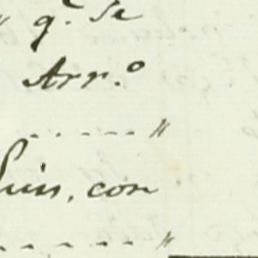 " q.e Se
Arr.o
- - - - - "
Luis, con
- - - - - "